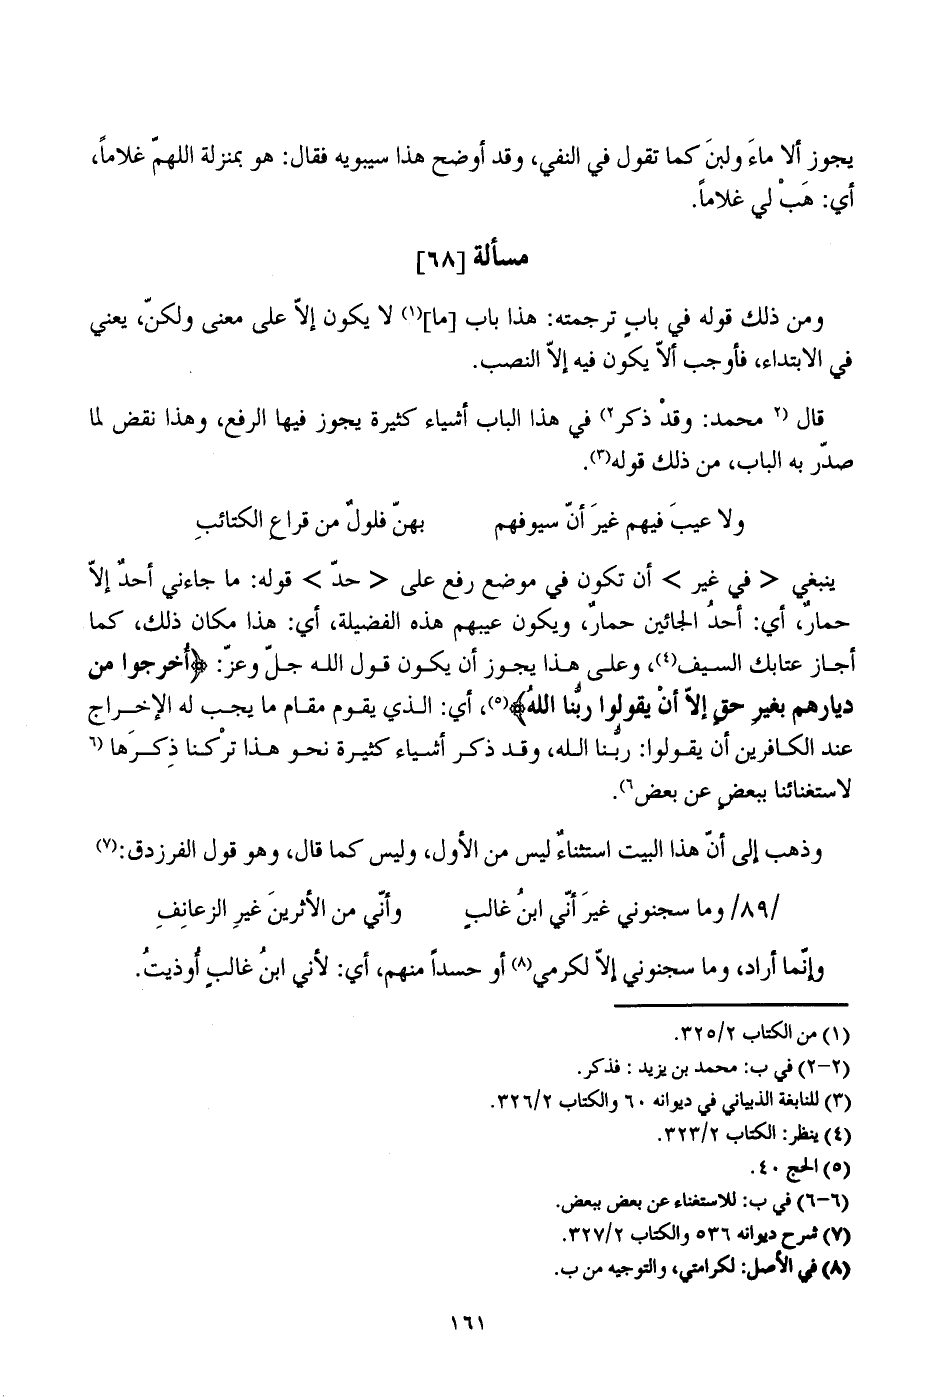 يجوز ألا ماءَ ولبنَ كما تقول في النفي، وقد أوضح هذا سيبويه فقال: هو بمنزلة اللهمّ غلاماً،
أي: هَبْ لي غلاماً.
مسألة [٦٨]
ومن ذلك قوله في بابٍ ترجمته: هذا باب [ما](١) لا يكون إلاّ على معنى ولكنّ، يعني
في الابتداء، فأوجب ألاّ يكون فيه إلاّ النصب.
قال (٢ محمد: وقدْ ذكر٢) في هذا الباب أشياء كثيرة يجوز فيها الرفع، وهذا نقض لما
صدّر به الباب، من ذلك قوله(٣).
ولا عيبَ فيهم غيرَ أنّ سيوفهم بهنّ فلولٌ من قراعِ الكتائبِ
ينبغي < في غير > أن تكون في موضع رفع على < حدّ > قوله: ما جاءني أحدٌ إلاّ
حمارٌ، أي: أحدُ الجائين حمارٌ، ويكون عيبهم هذه الفضيلة، أي: هذا مكان ذلك، كما
أجاز عتابك السيف(٤)، وعلى هذا يجوز أن يكون قول الله جلّ وعزّ: ﴿أُخرجوا من
ديارهم بغيرِ حقٍ إلاّ أنْ يقولوا ربُّنا اللهُ﴾(٥)، أي: الذي يقوم مقام ما يجب له الإخراج
عند الكافرين أن يقولوا: ربُّنا الله، وقد ذكر أشياء كثيرة نحو هذا ترْكنا ذِكرَها (٦
لاستغنائنا ببعضٍ عن بعض٦).
وذهب إلى أنّ هذا البيت استثناءٌ ليس من الأول، وليس كما قال، وهو قول الفرزدق:(٧)
/٨٩/ وما سجنوني غيرَ أنّي ابنُ غالبٍ وأنّي من الأثرينَ غيرِ الزعانِفِ
وإنّما أراد، وما سجنوني إلاّ لكرمي(٨) أو حسداً منهم، أي: لأني ابنُ غالبٍ أُوذيتُ.
(١) من الكتاب ٣٢٥/٢.
(٢-٢) في ب: محمد بن يزيد : فذكر.
(٣) للنابغة الذبياني في ديوانه ٦٠ والكتاب ٣٢٦/٢.
(٤) ينظر: الكتاب ٣٢٣/٢.
(٥) الحج ٤٠.
(٦-٦) في ب: للاستغناء عن بعض ببعض.
(٧) شرح ديوانه ٥٣٦ والكتاب ٣٢٧/٢.
(٨) في الأصل: لكرامتي، والتوجيه من ب.
١٦١